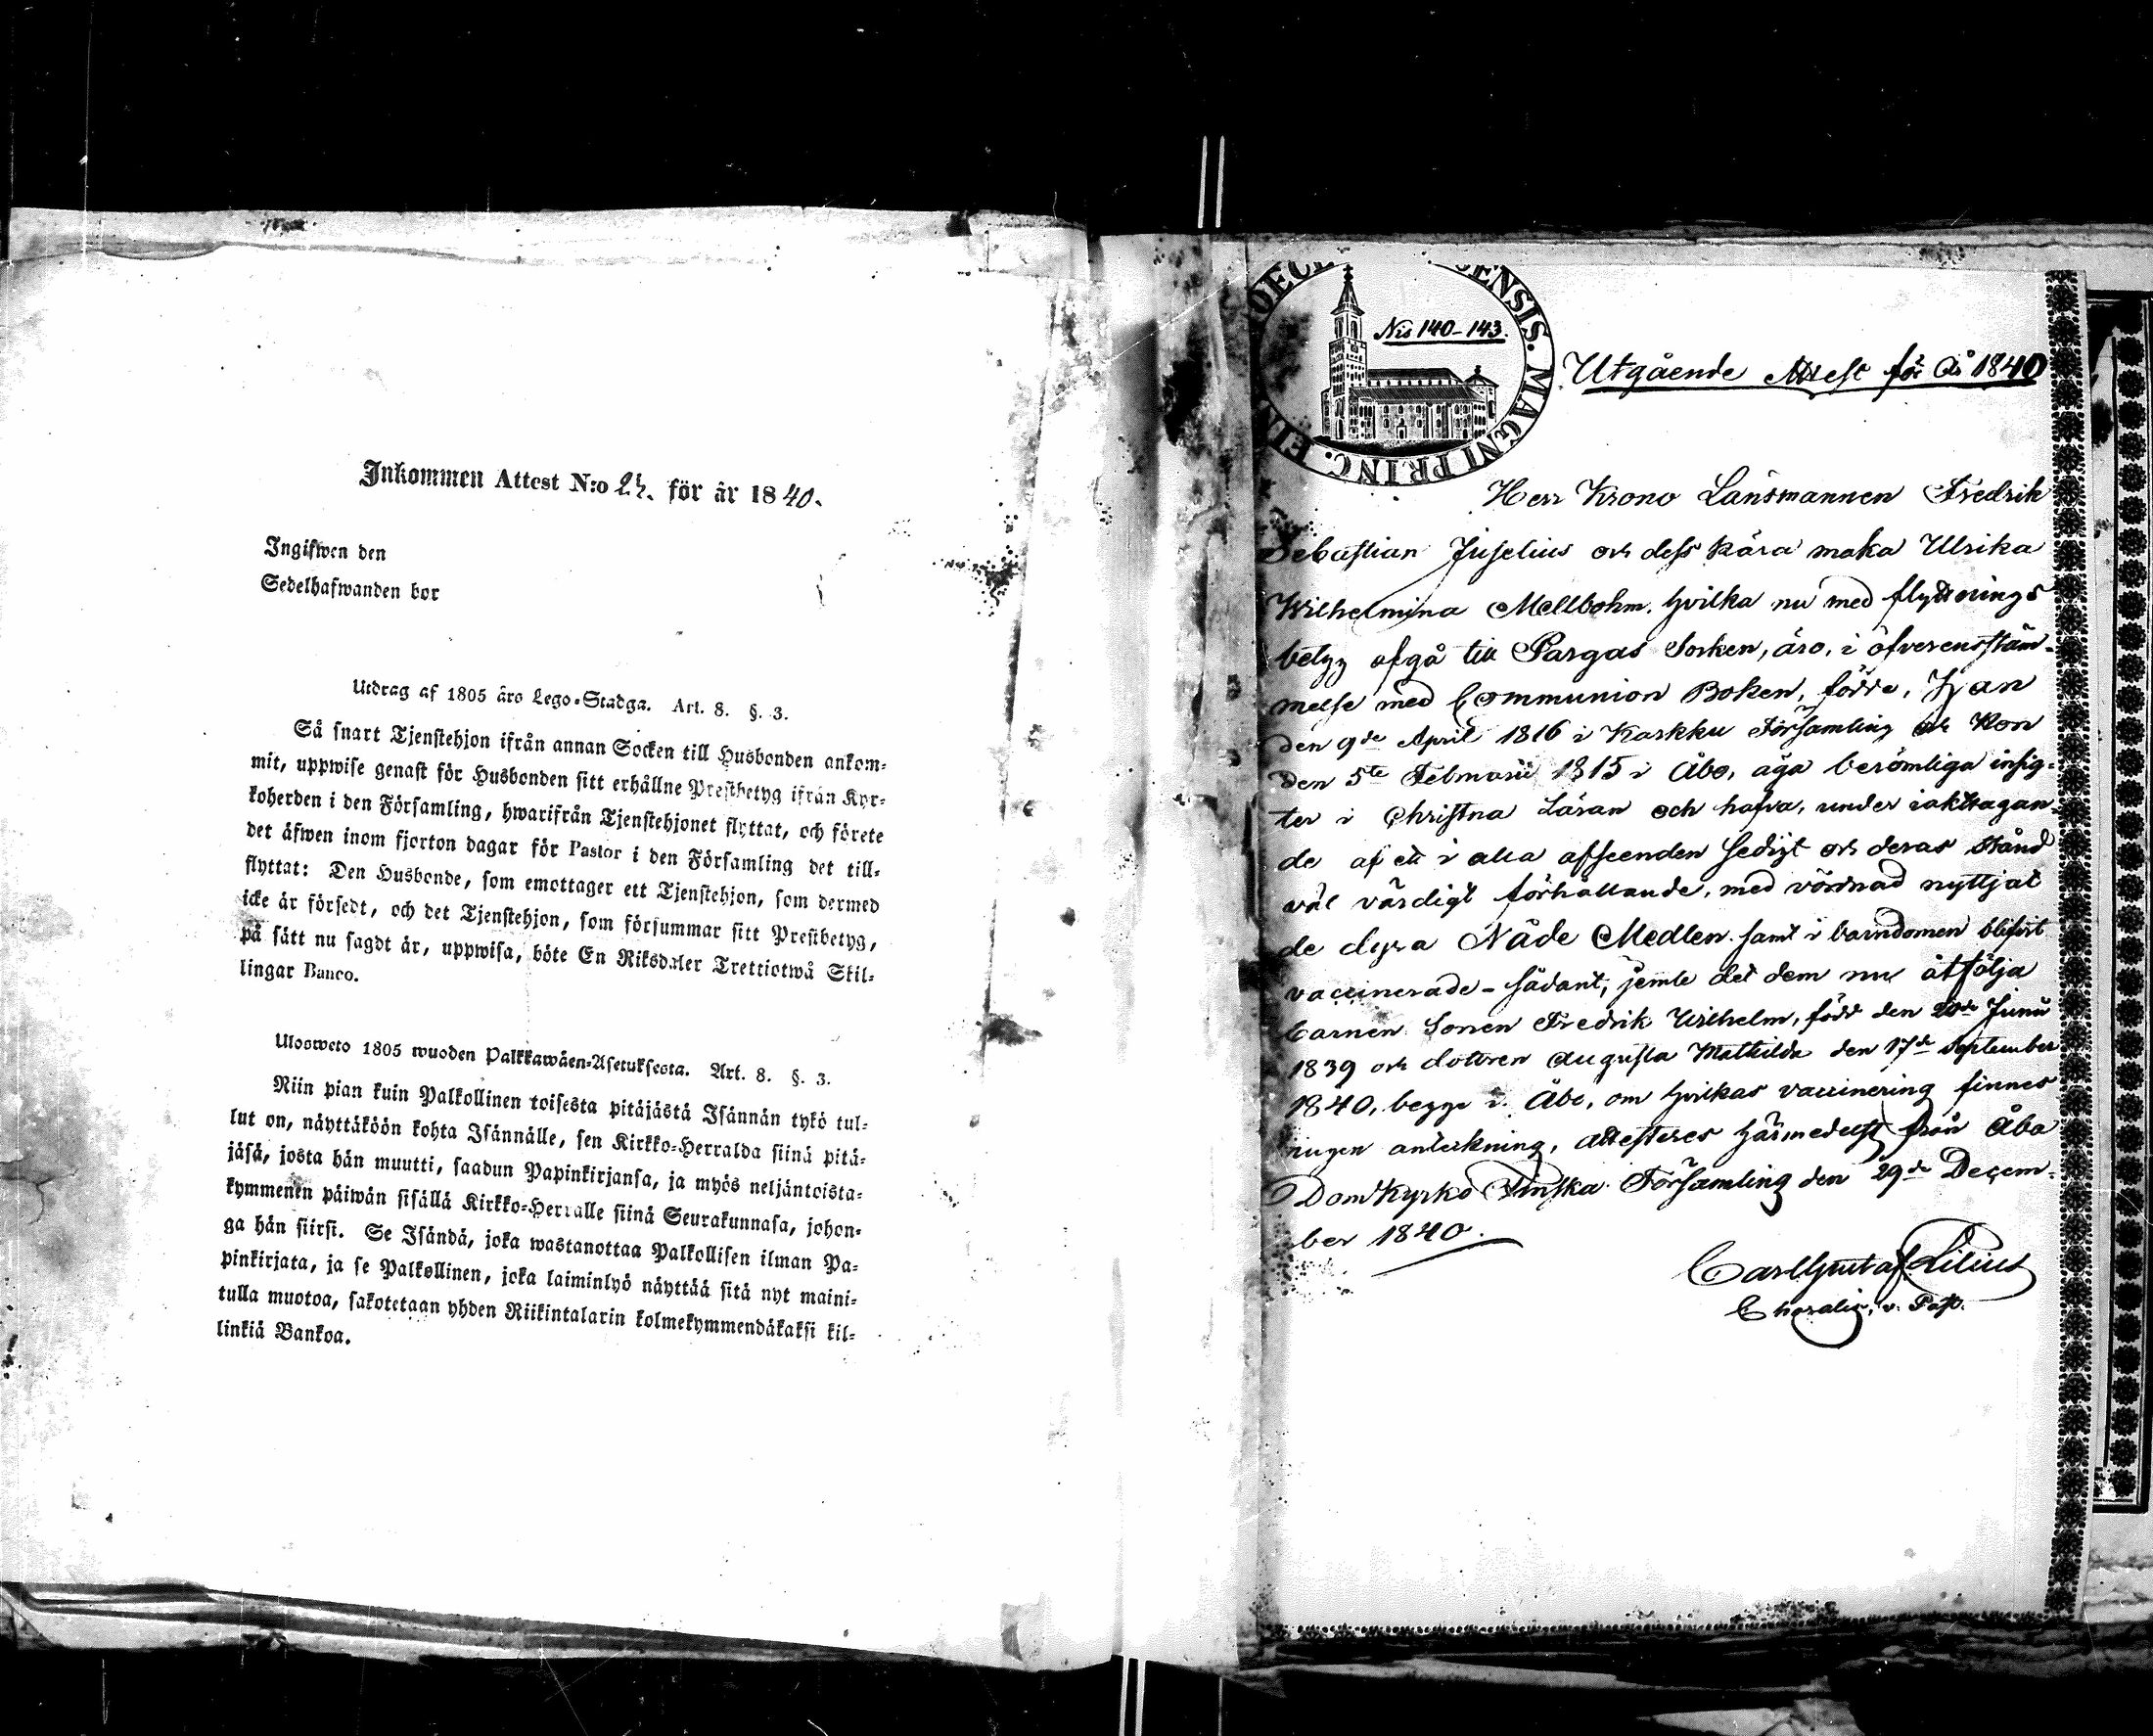 Inkommen Attest N:o 24. för år 1840.
Ingifwen den
Sedelhafwanden bor
Utdrag af 1805 års Lego-Stadga. Art. 8. §. 3.
Så snart Tjenstehjon ifrån annan Socken till Husbonden ankom-
mit, uppwise genast för Husbonden sitt erhållne Prestbetyg ifrån Kyr-
koherden i den Församling, hwarifrån Tjenstehjonet flyttat, och förete
det äfwen inom fjorton dagar för Pastor i den Församling det till-
flyttat: Den Husbonde, som emottager ett Tjenstehjon, som dermed
icke är försedt, och det Tjenstehjon, som försummar sitt Prestbetyg,
på sätt nu sagdt är, uppwisa, böte En Riksdaler Trettiotwå Skil-
lingar Banco.
Ulosweto 1805 wuoden Palkkawäen-Asetuksesta. Art. 8. §. 3.
Niin pian kuin Palkollinen toisesta pitäjästä Isännän tykö tul-
lut on, näyttäköön kohta Isännälle, sen Kirkko-Herralda siinä pitä-
jäsä, josta hän muutti, saadun Papinkirjansa, ja myös neljäntoista-
kymmenen päiwän sisällä Kirkko-Herralle siinä Seurakunnasa, johon-
ga hän siirsi. Se Isändä, joka wastanottaa Palkollisen ilman Pa-
pinkirjata, ja se Palkollinen, joka laiminlyö näyttää sitä nyt maini-
tulla muotoa, sakotetaan yhden Riikintalarin kolmekymmendäkaksi kil-
linkiä Bankoa.
ENSIS. MAGNI PRINC.
Nis 140-143.
Utgående Attest för År 1840
Herr Krono Länsmannen Fredrik
Sebastian Juselius och dess kära maka Ulrika
Wilhelmina Mellbohm, hvilka nu med flyttnings
betyg afgå till Pargas Socken, äro, i öfverensstäm-
melse med Communion Boken, födde, Han
den 9de April 1816 i Karkku Församling och Hon
den 5te Februarii 1815 i Åbo, äga berömliga insig-
ter i Christna Läran och hafva, under iakttagan-
de af ett i alla afseenden sedigt och deras stånd
väl värdigt förhållande, med vördnad nyttjat
de dyra Nåde Medlen samt i barndomen blifvit
vaccinerade - sådant, jemte det dem nu åtfölja
barnen Sonen Fredrik Wilhelm, född den 20de Junii
1839 och dottren Augusta Mathilda den 17de September
1840, begge i Åbo, om hvilkas vaccinering finnes
ingen anteckning, attesteres härmedelst från Åbo
Domkyrko Finska Församling den 29de Decem-
ber 1840.
Carl Gustaf Lilius
v. Past.